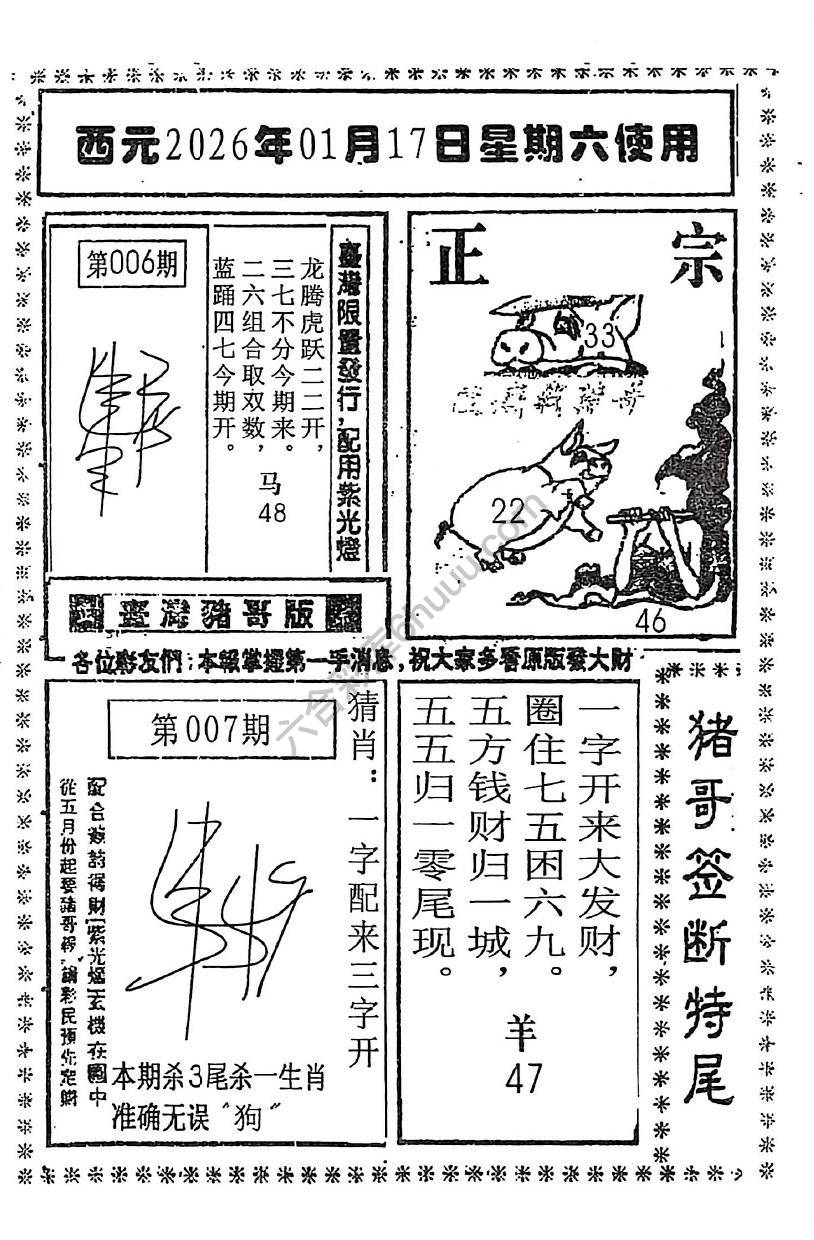 西元2026年01月17日星期六使用
第006期
臺灣限量發行，配用紫光燈
龙腾虎跃二二开，
三七不分今期来。
二六组合取双数，
蓝踊四七今期开。
马
48
臺灣豬哥版
正宗
33
22
46
各位彩友們：本報掌握第一手消息，祝大家多看原版發大財
第007期
猜肖：一字配来三字开
本期杀3尾杀一生肖
准确无误“狗”
一字开来大发财，
圈住七五困六九。
五方钱财归一城，
五五归一零尾现。
羊
47
猪哥签断特尾
六合彩库6huuu.com